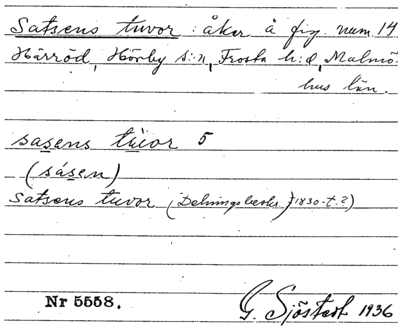 Satsens tuvor: åker å fig. num. 14
Härröd, Hörby s:n, Frosta h:d, Malmö-
hus län.
sasens tuvor 5
(sásen)
Satsens tuvor (Delningsbeskr. 1830-t.?)
Nr 5558. G. Sjöstedt 1936